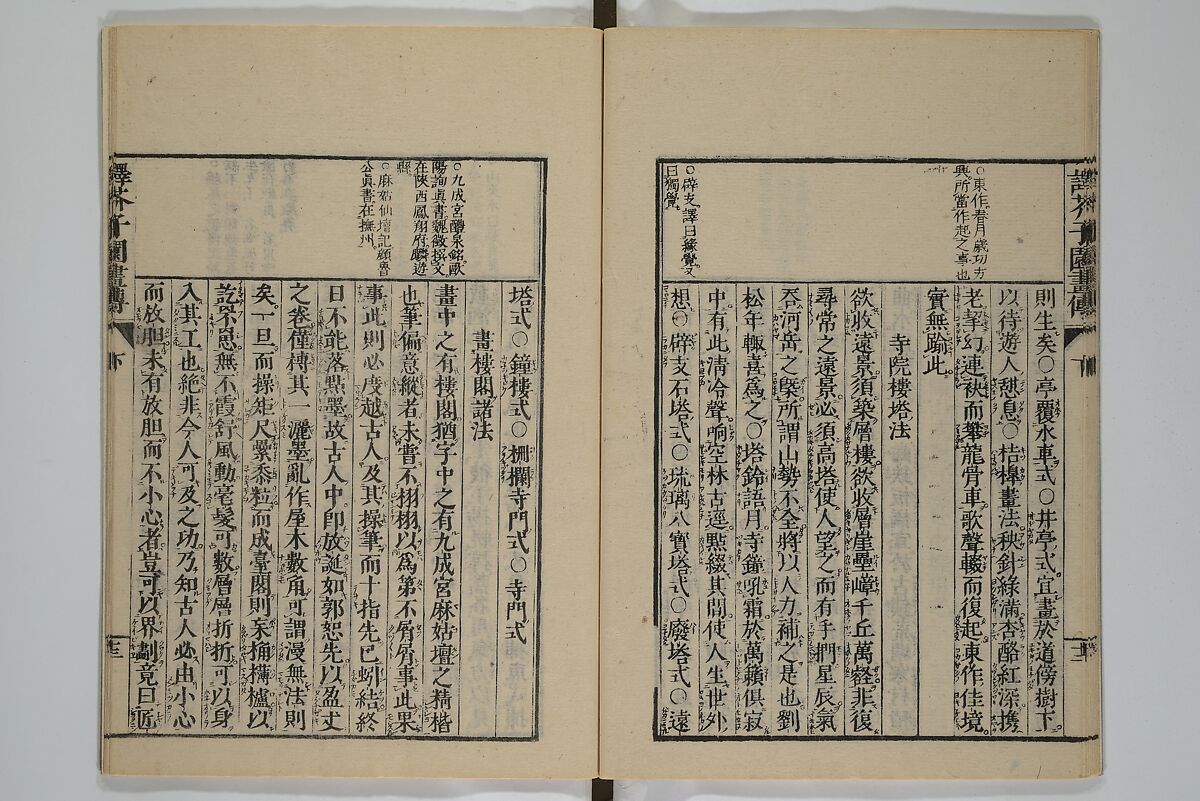 譯芥子園畫傳
下
十二
○東作春月歳功方
興所當作起之事也
○辟支譯曰緣覺又
曰獨覺
則生矣○亭覆水車式○井亭式宜畫於道傍樹下
以待遊人憩息○桔槔畫法秧針綠滿杏酪紅深携
老挈幻連袂而攀龍骨車歌聲輟而復起東作佳境
實無踰此
寺院樓塔法
欲收遠景須築層樓欲收層崖疊嶂千丘萬壑非復
尋常之遠景必須高塔使人望之而有手捫星辰氣
吞河嵩之槩所謂山勢不全將以人力補之是也劉
松年輙喜爲之○塔鈴語月寺鐘吼霜於萬籟俱寂
中有此淸冷聲响空林古逕點綴其間使人生世外
想○辟支石塔式○琉璃八寳塔式○廢塔式○遠
塔式○鐘樓式○柵欄寺門式○寺門式
○九成宮醴泉銘歐
陽詢眞書魏徵撰文
在陜西鳳翔府麟遊
縣
○麻姑仙壇記顔魯
公眞書在撫州
畫樓閣諸法
畫中之有樓閣猶字中之有九成宮麻姑壇之精楷
也筆偏意縱者未嘗不栩栩以爲第不屑屑事此果
事此則必度越古人及其操筆而十指先已蚓結終
日不能落點墨故古人中卽放誕如郭恕先以盈丈
之卷僅摶其一灑墨亂作屋木數角可謂漫無法則
矣一旦而操矩尺纍黍粒而成臺閣則䆲桷欂櫨以
訖罘罳無不霞舒風動毫髪可數層層折折可以身
入其工也絶非今人可及之功乃知古人必由小心
而放胆未有放胆而不小心者豈可以界劃竟曰匠
譯芥子園畫傳
下
十三